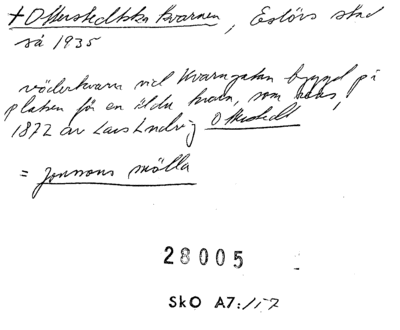 + Otterstedtska kvarnen, Eslövs stad
så 1935
väderkvarn vid Kvarngatan byggd på
platsen för en äldre kvarn, som köps,
1872 av Lars Ludvig Otterstedt
= Jonssons mölla
28005
SkO A7:/157